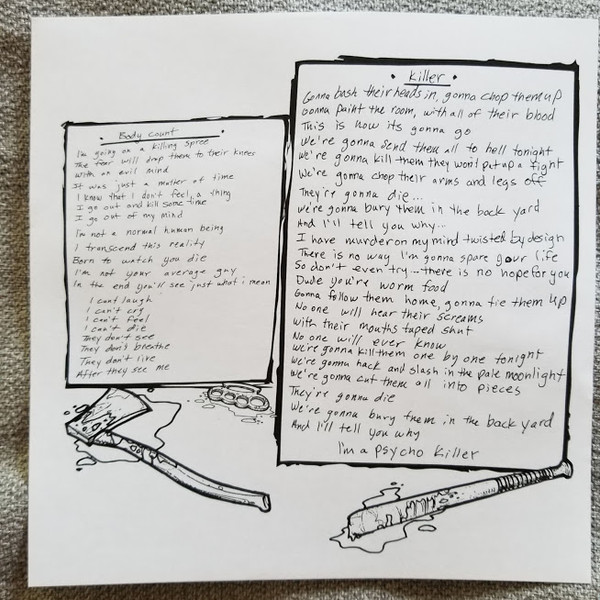 Body count
I'm going on a killing spree
The fear will drop them to their knees
With an evil mind
It was just a matter of time
I know that I don't feel a thing
I go out and kill some time
I go out of my mind
I'm not a normal human being
I transcend this reality
Born to watch you die
I'm not your average guy
In the end you'll see just what i mean
I cant laugh
I can't cry
I can't feel
I can't die
They don't see
They don't breathe
They don't live
After they see me
Killer
Gonna bash their heads in, gonna chop them up
Gonna paint the room, with all of their blood
This is how its gonna go
We're gonna send them all to hell tonight
We're gonna kill them they won't put up a fight
We're gonna chop their arms and legs off
They're gonna die...
We're gonna bury them in the back yard
And I'll tell you why...
I have murder on my mind twisted by design
There is no way I'm gonna spare your life
So don't even try... there is no hope for you
Dude you're worm food
Gonna follow them home, gonna tie them up
No one will hear their screams
With their mouths taped shut
No one will ever know
We're gonna kill them one by one tonight
We're gonna hack and slash in the pale moonlight
We're gonna cut them all into pieces
They're gonna die
We're gonna bury them in the back yard
And I'll tell you why
I'm a psycho killer